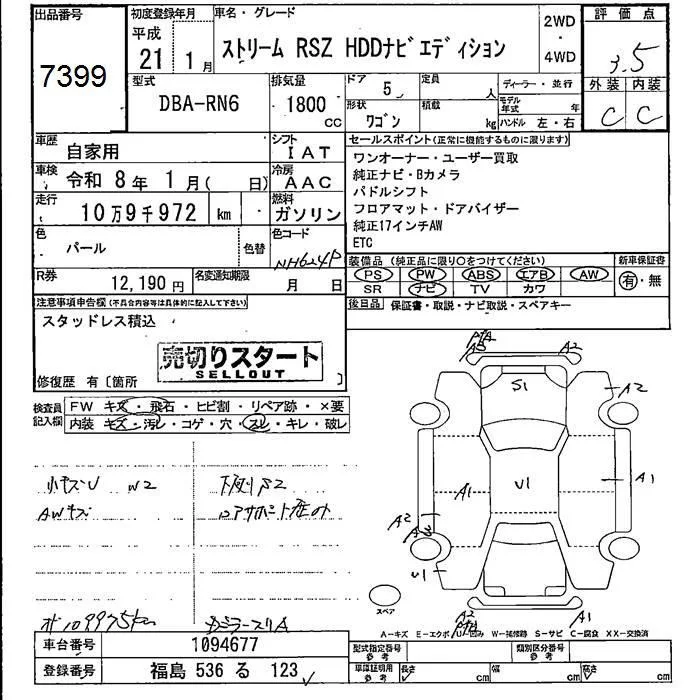 出品番号
7399
初度登録年月
平成
21年 1月
車名・グレード
ストリーム RSZ HDDナビエディション
2WD
・
4WD
評価点
3.5
外装 内装
C C
型式
DBA-RN6
排気量
1800
cc
ドア 5
形状
ワゴン
定員
人
積載
kg
ディーラー・並行
モデル年式 年
ハンドル 左・右
車歴
自家用
シフト
IAT
車検
令和 8年 1月( 日)
冷房
AAC
走行
10万9千972 km
燃料
ガソリン
色
パール
色替
色コード
NH624P
R券
12,190円
名変通知期限
月 日
セールスポイント(正常に機能するものに限ります)
ワンオーナー・ユーザー買取
純正ナビ・Bカメラ
パドルシフト
フロアマット・ドアバイザー
純正17インチAW
ETC
装備品(純正品に限り○をつけてください)
PS PW ABS エアB AW
SR ナビ TV カワ
新車保証書
有・無
後日品 保証書・取説・ナビ取説・スペアキー
注意事項申告欄(不具合内容等は具体的に記入して下さい)
スタッドレス積込
売切りスタート
SELLOUT
修復歴 有〔箇所 〕
検査員記入欄
FW キズ・飛石・ヒビ割・リペア跡・×要
内装 キズ・汚レ・コゲ・穴・スレ・キレ・破レ
小キズU W2
AWキズ
下廻りS2
コアサポート歪み
A2
A5
S1
A2
A1
U1
A1
A2
A3
U1
A2
A1
スペア
A-キズ E-エクボ U-凹み W-補修跡 S-サビ C-腐食 XX-交換済
109975km
車台番号
1094677
登録番号
福島 536 る 123
型式指定番号
参考
類別区分番号
参考
車庫証明用
参考
長さ cm
幅 cm
高さ cm